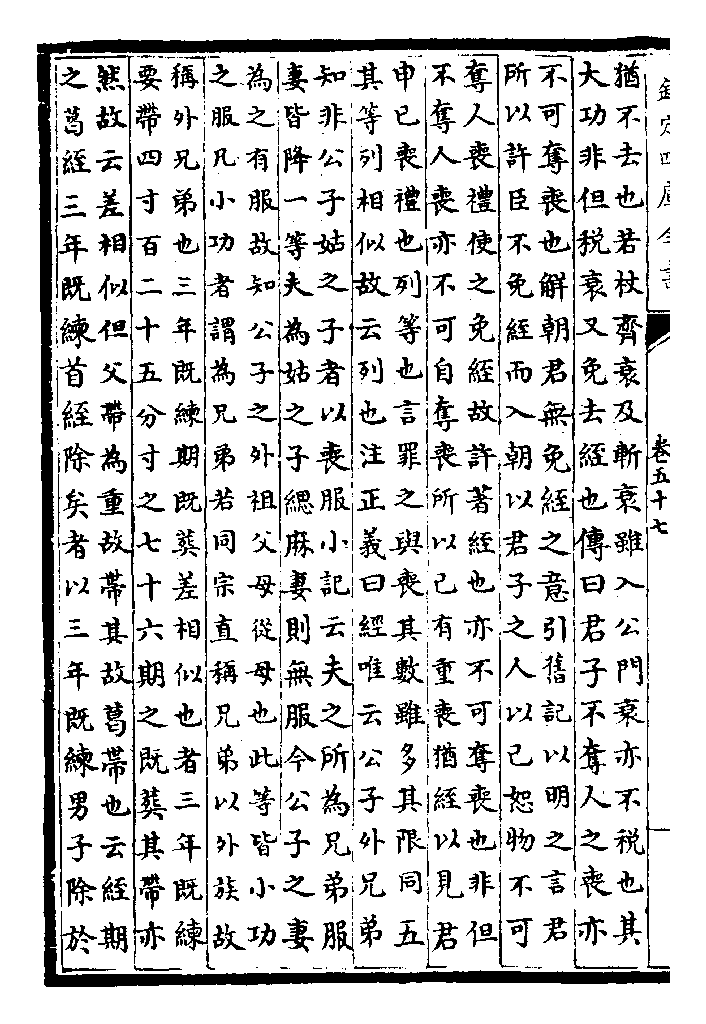 欽定四庫全書
卷五十七
猶不去也若杖齊衰及斬衰雖入公門衰亦不税也其
大功非但税衰又免去絰也傳曰君子不奪人之喪亦
不可奪喪也解朝君無免絰之意引舊記以明之言君
所以許臣不免絰而入朝以君子之人以己恕物不可
奪人喪禮使之免絰故許著絰也亦不可奪喪也非但
不奪人喪亦不可自奪喪所以己有重喪猶絰以見君
申己喪禮也列等也言罪之與喪其數雖多其限同五
其等列相似故云列也注正義曰經唯云公子外兄弟
知非公子姑之子者以喪服小記云夫之所為兄弟服
妻皆降一等夫為姑之子緦麻妻則無服今公子之妻
為之有服故知公子之外祖父母從母也此等皆小功
之服凡小功者謂為兄弟若同宗直稱兄弟以外族故
稱外兄弟也三年既練期既葬差相似也者三年既練
要帶四寸百二十五分寸之七十六期之既葬其帶亦
然故云差相似但父帶為重故帶其故葛帶也云絰期
之葛絰三年既練首絰除矣者以三年既練男子除於